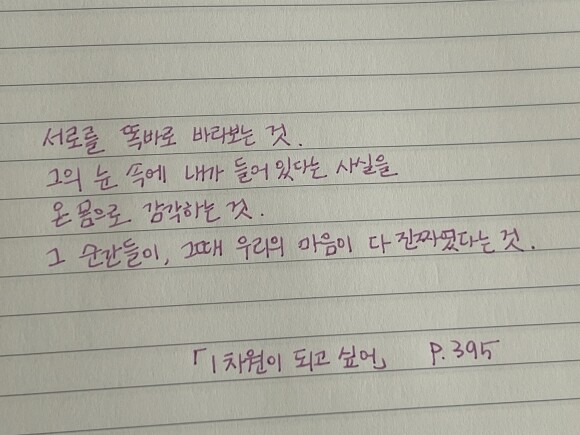 서로를 똑바로 바라보는 것.
그의 눈 속에 내가 들어있다는 사실을
온 몸으로 감각하는 것.
그 순간들이, 그때 우리의 마음이 다 진짜였다는 것.
「1차원이 되고 싶어」 P.395